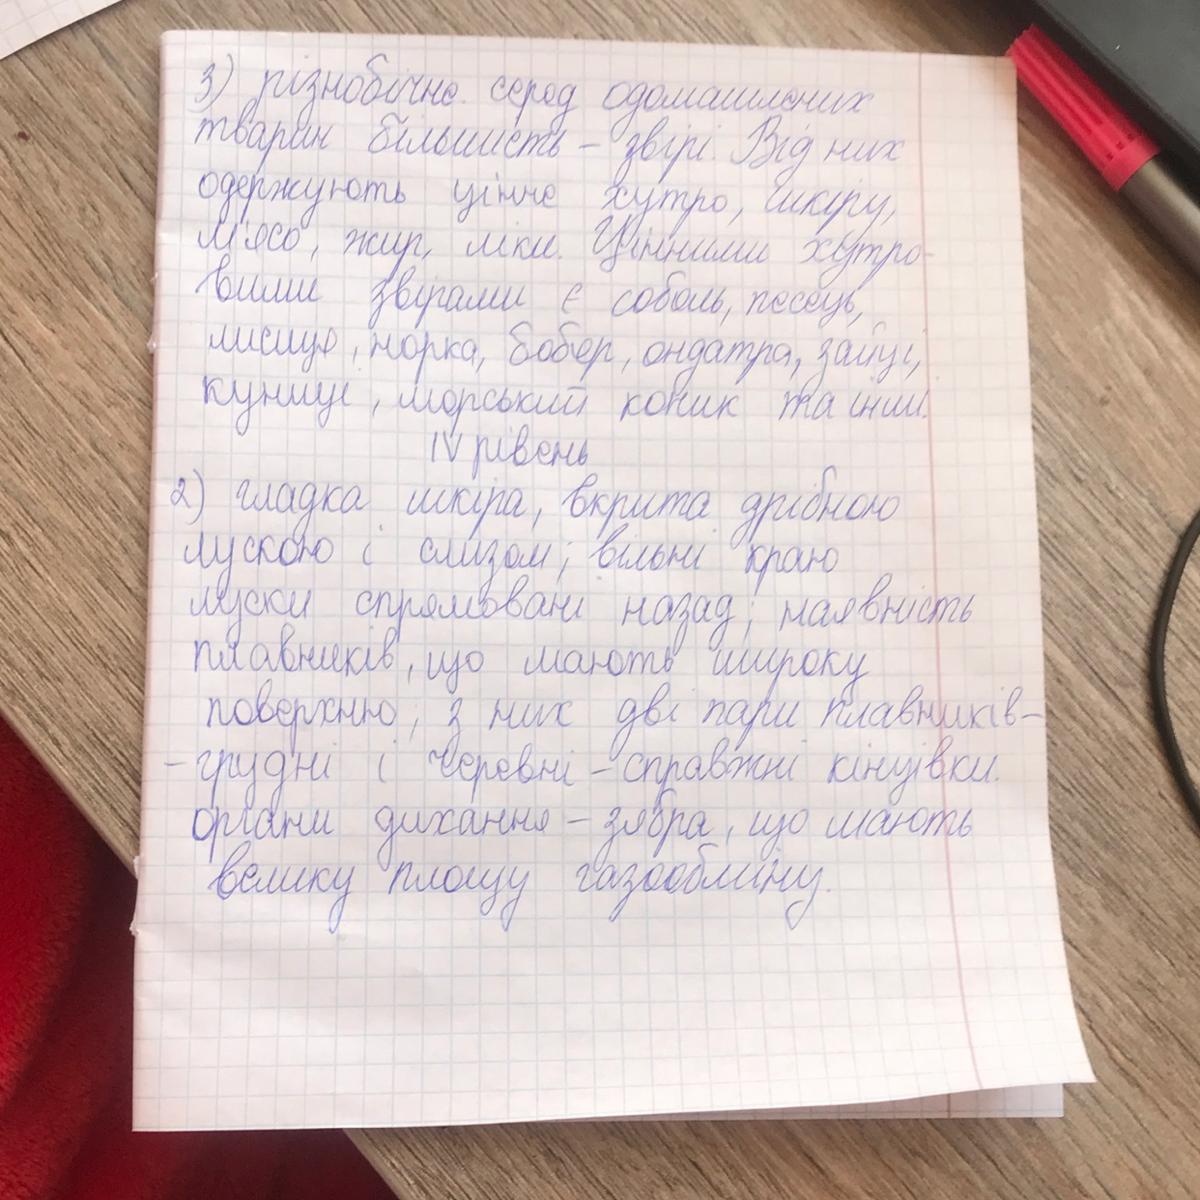 3) різнобічне. серед одомашлених
тварин більшисть - звірі. Від них
одержують цінне хутро, шкіру,
м'ясо, жир, ліки. Цінними хутро-
вими звірами є соболь, песець,
лисиця, норка, бобер, ондатра, зайці,
куниці, морський коник та інші.
IV рівень
2) гладка шкіра, вкрита дрібною
лускою і слизом; вільні краю
луски спрямовані назад; наявність
плавників, що мають широку
поверхню; з них дві пари плавників-
- грудні і черевні - справжні кінцівки.
органи дихання - зябра, що мають
велику площу газообміну.